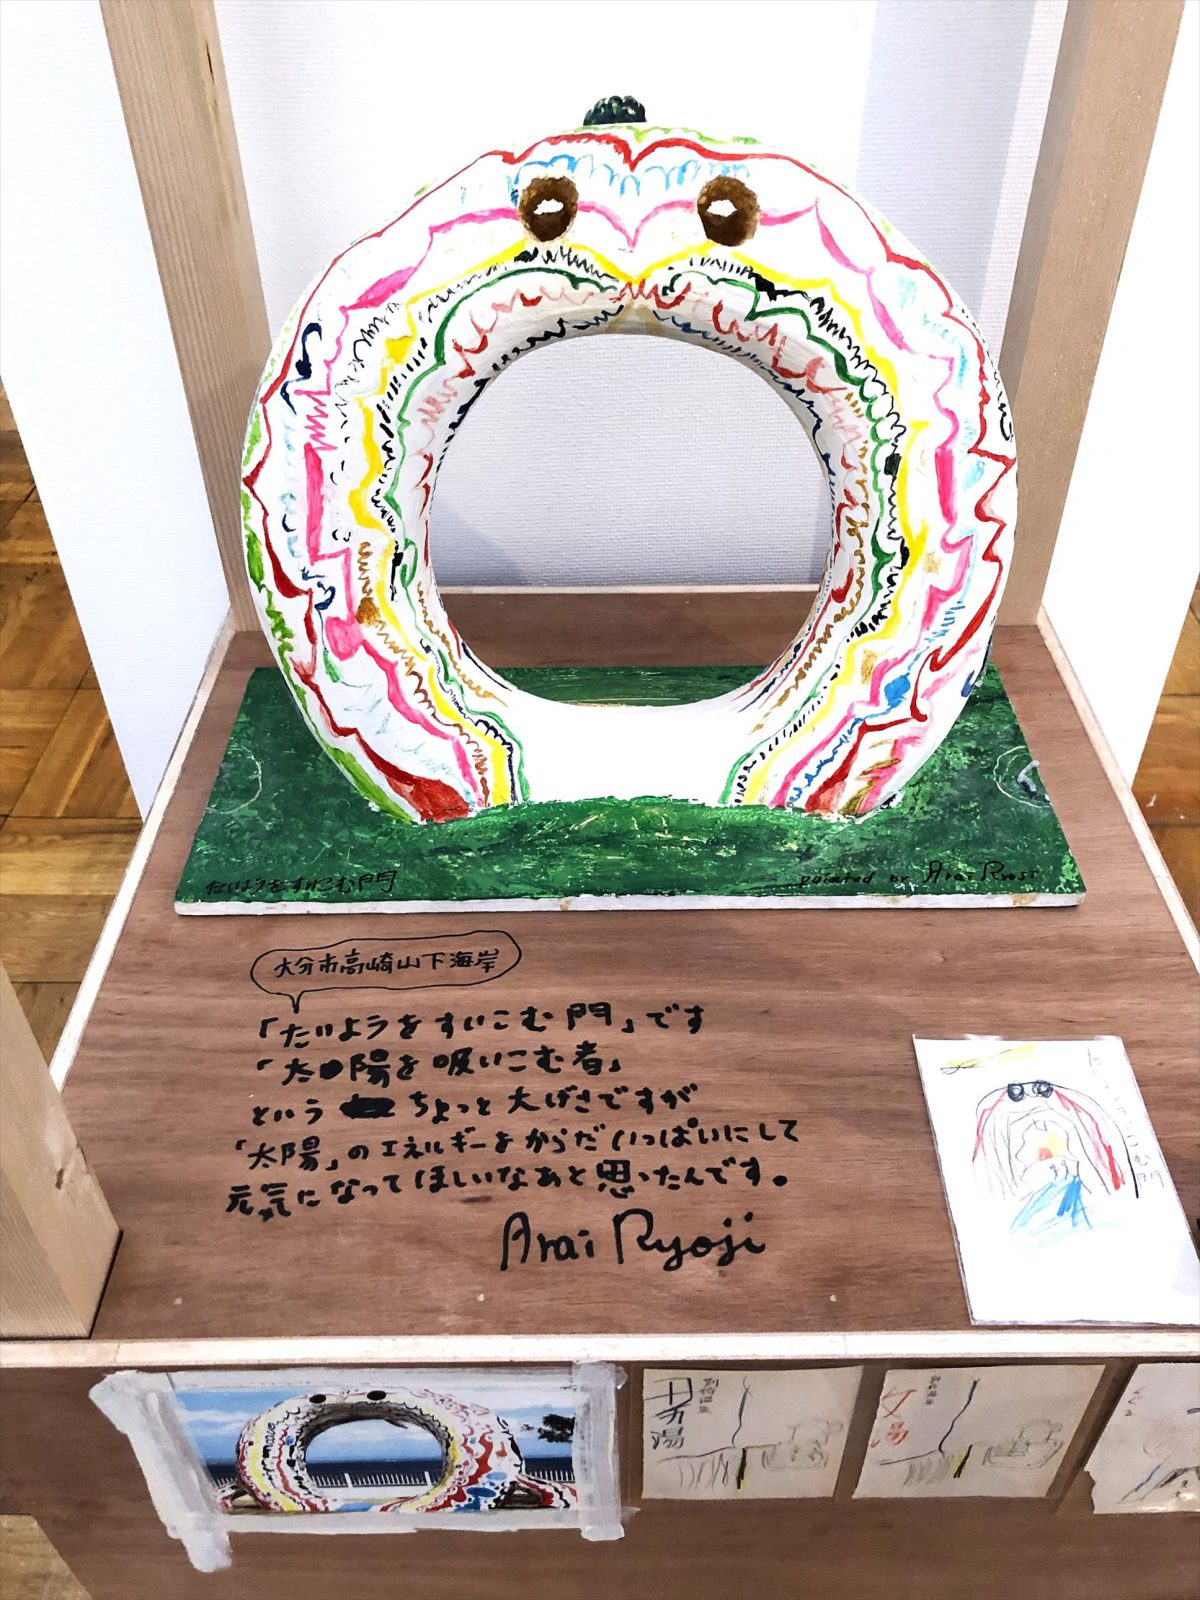 たいようをすいこむ門
painted by Arai Ryoji
大分市高崎山下海岸
「たいようをすいこむ門」です
「太陽を吸いこむ者」
という ちょっと大げさですが
「太陽」のエネルギーをからだいっぱいにして
元気になってほしいなあと思ったんです。
Arai Ryoji
たいようをすいこむ門
男湯
女湯